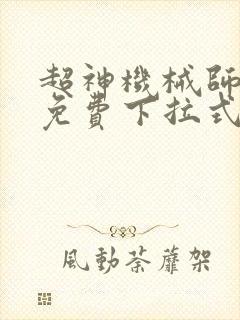 超神機械師
免費下拉式
風動荼蘼架